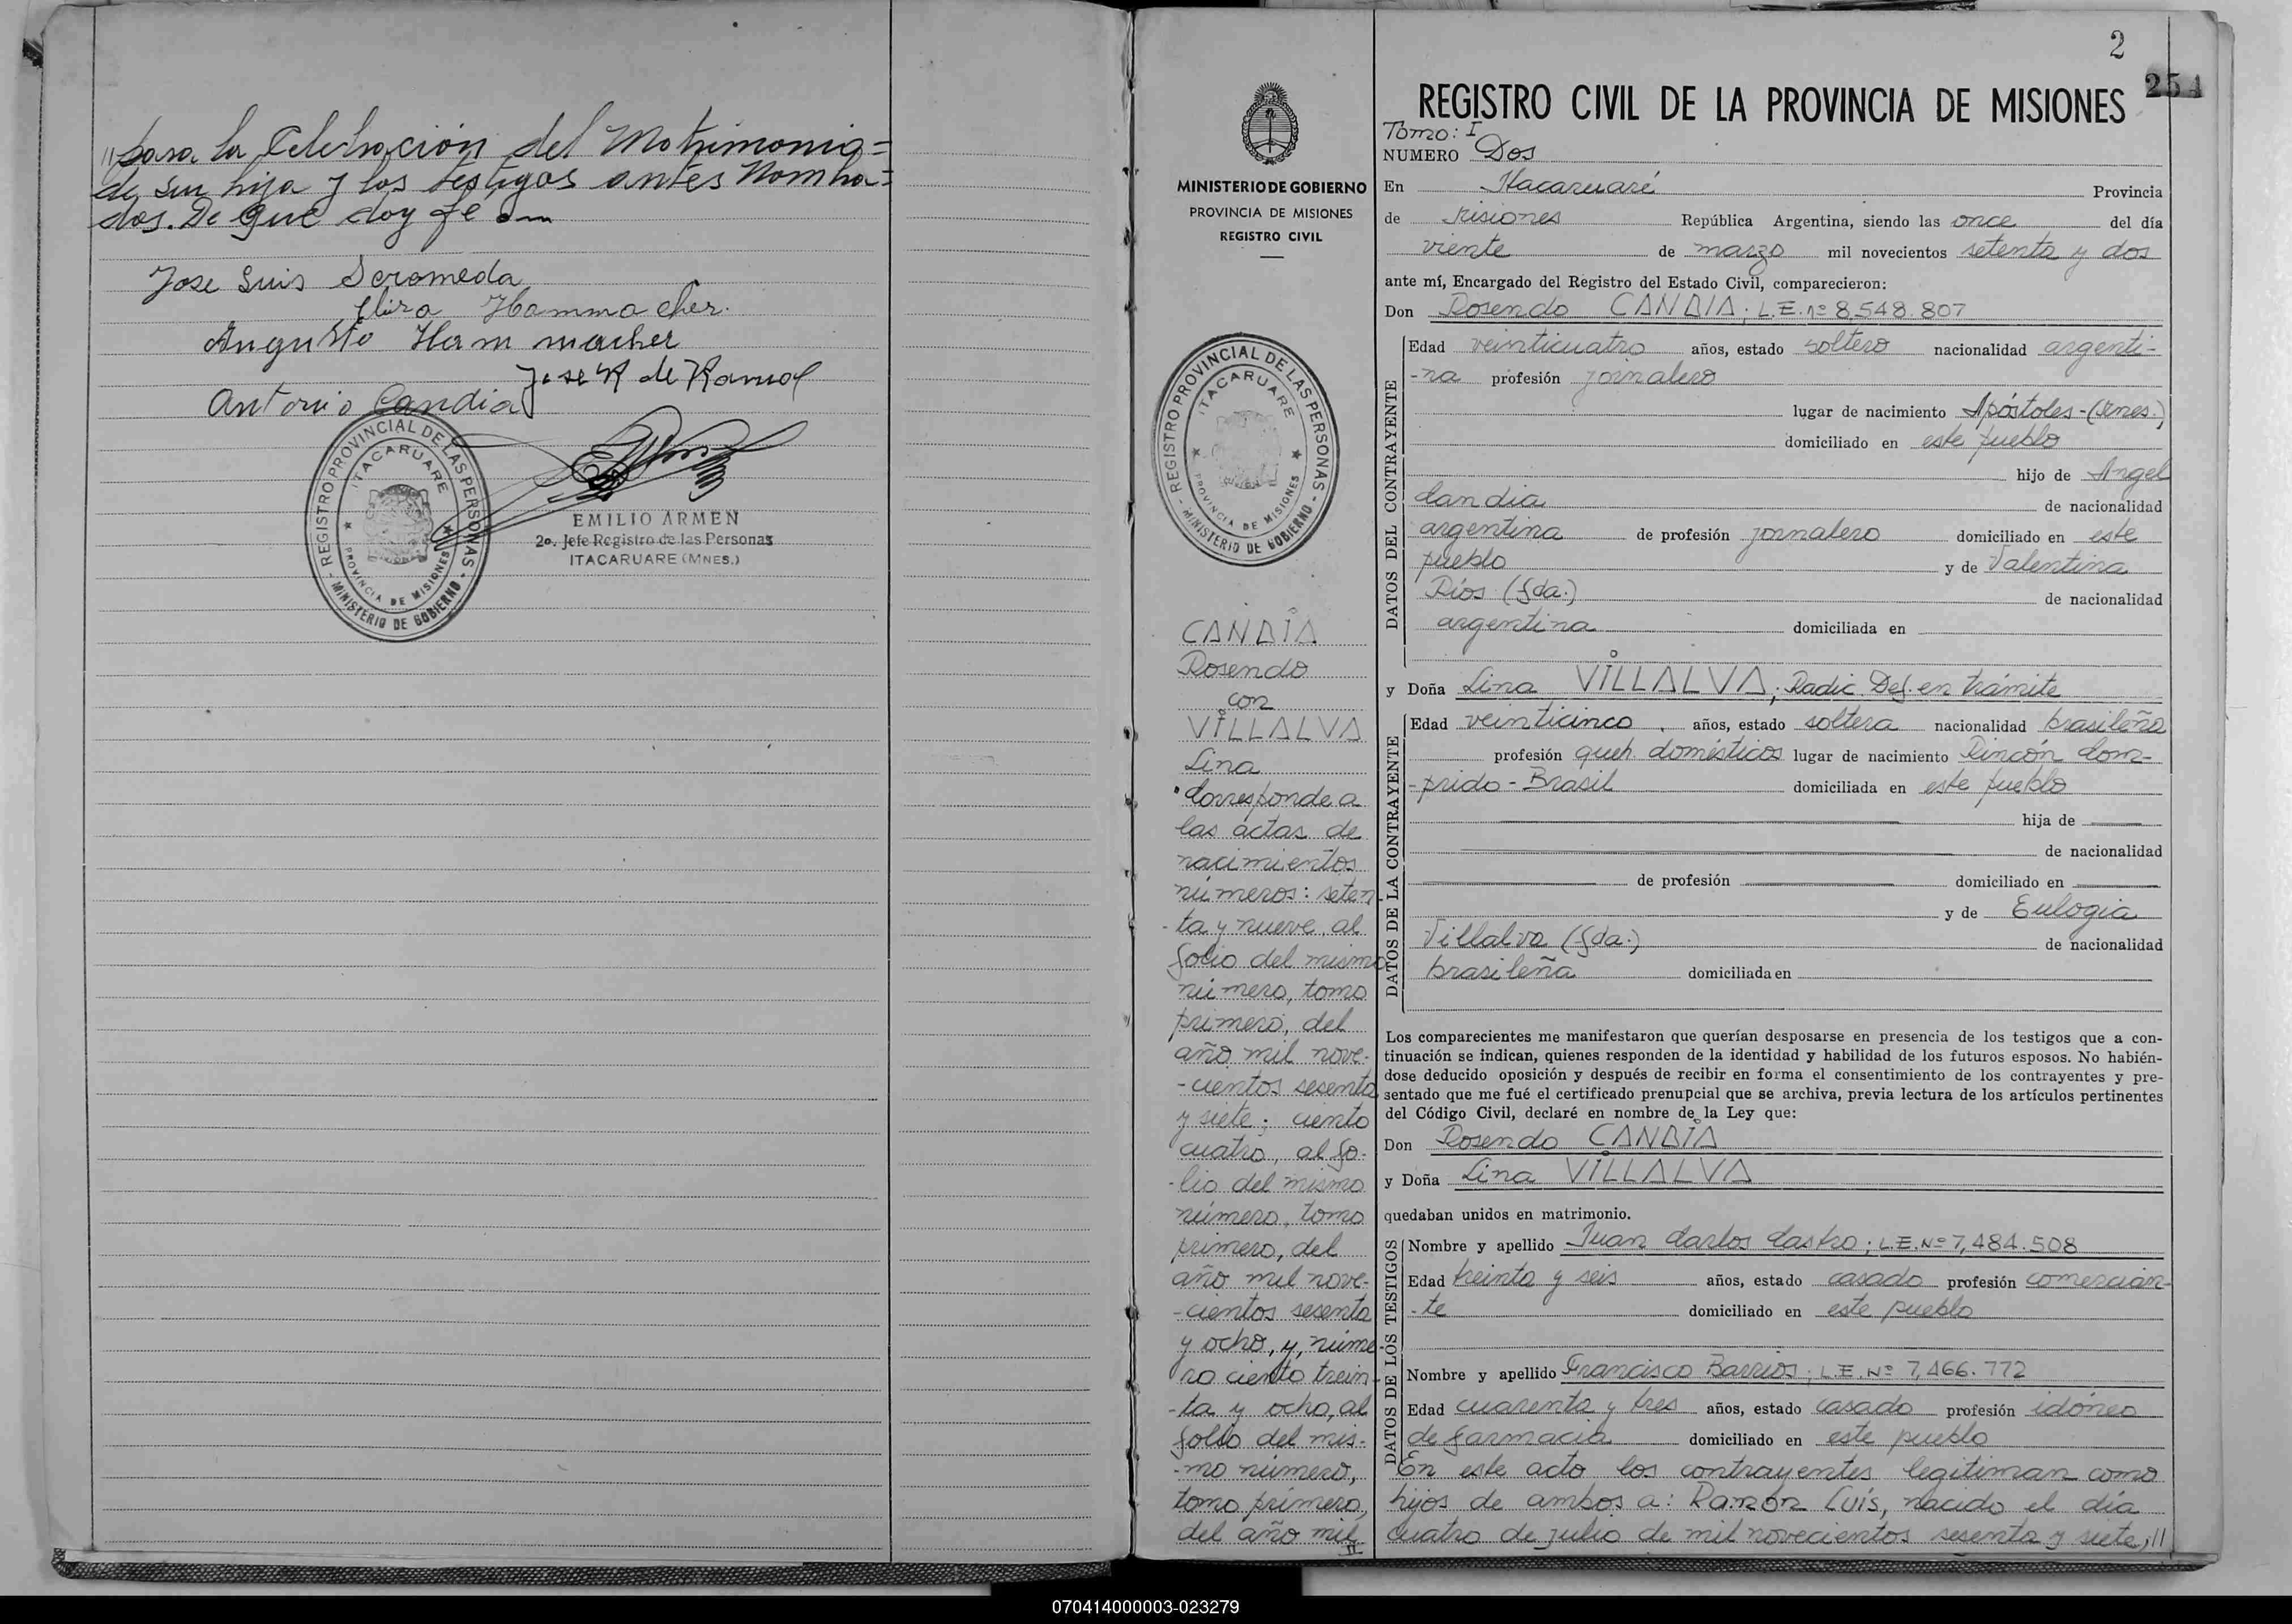 "para la Celebración del Matrimonio=
de su hija y los testigos antes Nombra=
dos. De que doy fé
Jose Luis
Elira Hammacher.
Augusto Hammacher
Jose R de Ramos
Antonio Candia
REGISTRO PROVINCIAL DE LAS PERSONAS
ITACARUARE
PROVINCIA DE MISIONES
MINISTERIO DE GOBIERNO
EMILIO ARMEN
2o. Jefe Registro de las Personas
ITACARUARE (MNES.)
2
254
MINISTERIO DE GOBIERNO
PROVINCIA DE MISIONES
REGISTRO CIVIL
REGISTRO PROVINCIAL DE LAS PERSONAS
ITACARUARE
PROVINCIA DE MISIONES
MINISTERIO DE GOBIERNO
CANDIA
Rosendo
con
VILLALVA
Lina
Corresponde a
las actas de
nacimientos
números: seten-
-ta y nueve, al
folio del mismo
número, tomo
primero, del
año mil nove-
-cientos sesenta
y siete; ciento
cuatro, al fo-
-lio del mismo
número, tomo
primero, del
año mil nove-
-cientos sesenta
y ocho, y, núme-
ro ciento trein-
-ta y ocho, al
folio del mis-
-mo número,
tomo primero,
del año mil
REGISTRO CIVIL DE LA PROVINCIA DE MISIONES
Tomo: I
NUMERO Dos
En Itacaruaré Provincia
de Misiones República Argentina, siendo las once del día
viente de marzo mil novecientos setenta y dos
ante mí, Encargado del Registro del Estado Civil, comparecieron:
Don Rosendo CANDIA; L.E. nº 8.548.807
DATOS DEL CONTRAYENTE
Edad veinticuatro años, estado soltero nacionalidad argenti-
-na profesión jornalero
lugar de nacimiento Apóstoles-(Mnes.)
domiciliado en este pueblo
hijo de Angel
Candia de nacionalidad
argentina de profesión jornalero domiciliado en este
pueblo y de Valentina
Ríos (fda.) de nacionalidad
argentina domiciliada en
y Doña Lina VILLALVA; Radic. Def. en trámite
DATOS DE LA CONTRAYENTE
Edad veinticinco años, estado soltera nacionalidad brasileña
profesión queh. domésticos lugar de nacimiento Rincón Com-
-prido-Brasil domiciliada en este pueblo
hija de
de nacionalidad
de profesión domiciliado en
y de Eulogia
Villalva (fda.) de nacionalidad
brasileña domiciliada en
Los comparecientes me manifestaron que querían desposarse en presencia de los testigos que a con-
tinuación se indican, quienes responden de la identidad y habilidad de los futuros esposos. No habién-
dose deducido oposición y después de recibir en forma el consentimiento de los contrayentes y pre-
sentado que me fué el certificado prenupcial que se archiva, previa lectura de los artículos pertinentes
del Código Civil, declaré en nombre de la Ley que:
Don Rosendo CANDIA
y Doña Lina VILLALVA
quedaban unidos en matrimonio.
DATOS DE LOS TESTIGOS
Nombre y apellido Juan Carlos Castro; L.E. Nº 7,484.508
Edad treinta y seis años, estado casado profesión comercian-
-te domiciliado en este pueblo
Nombre y apellido Francisco Barrios; L.E. Nº 7,466.772
Edad cuarenta y tres años, estado casado profesión idóneo
de farmacia domiciliado en este pueblo
En este acto los contrayentes legitiman como
hijos de ambos a: Ramón Luís, nacido el día
cuatro de julio de mil novecientos sesenta y siete;//
070414000003-023279